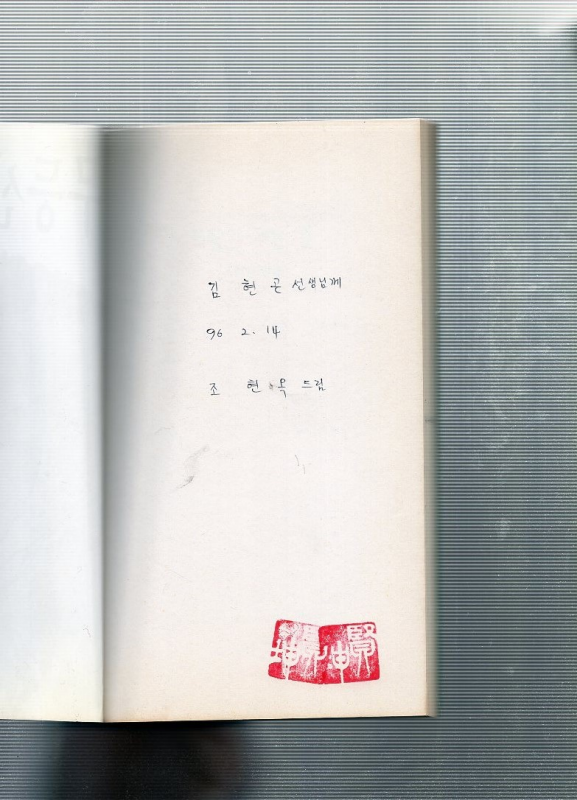 김 현 곤 선생님께
96 2. 14
조 현 옥 드림